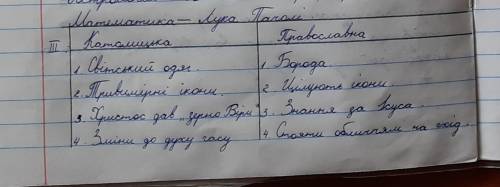 Математика — Лука Пачолі
III Католицька Православна
1. Світський одяг. 1. Борода
2. Тривимірні ікони. 2. Цілують ікони.
3. Христос дав „зерно Віри" 3. Знання за Ісуса.
4. Зміни до духу часу 4. Стояти обличчям на схід.